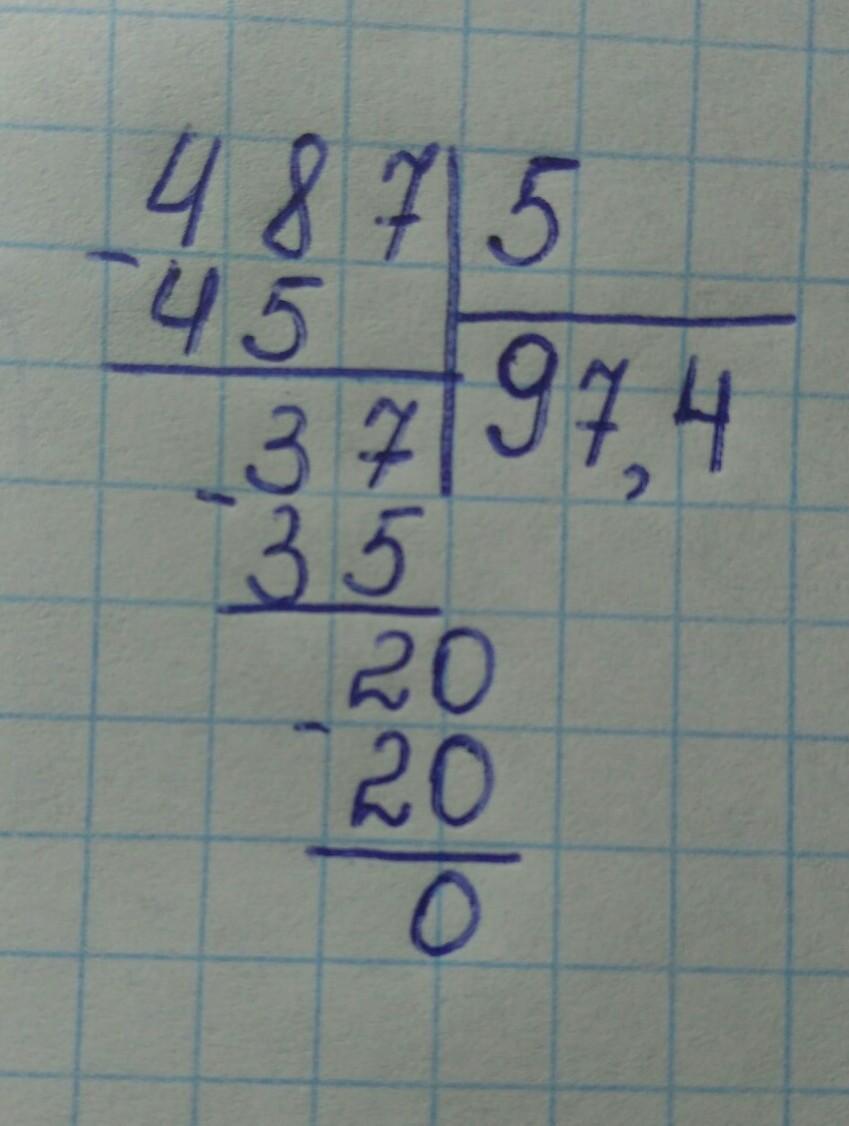 487 5
- 45
97,4
37
- 35
20
- 20
0